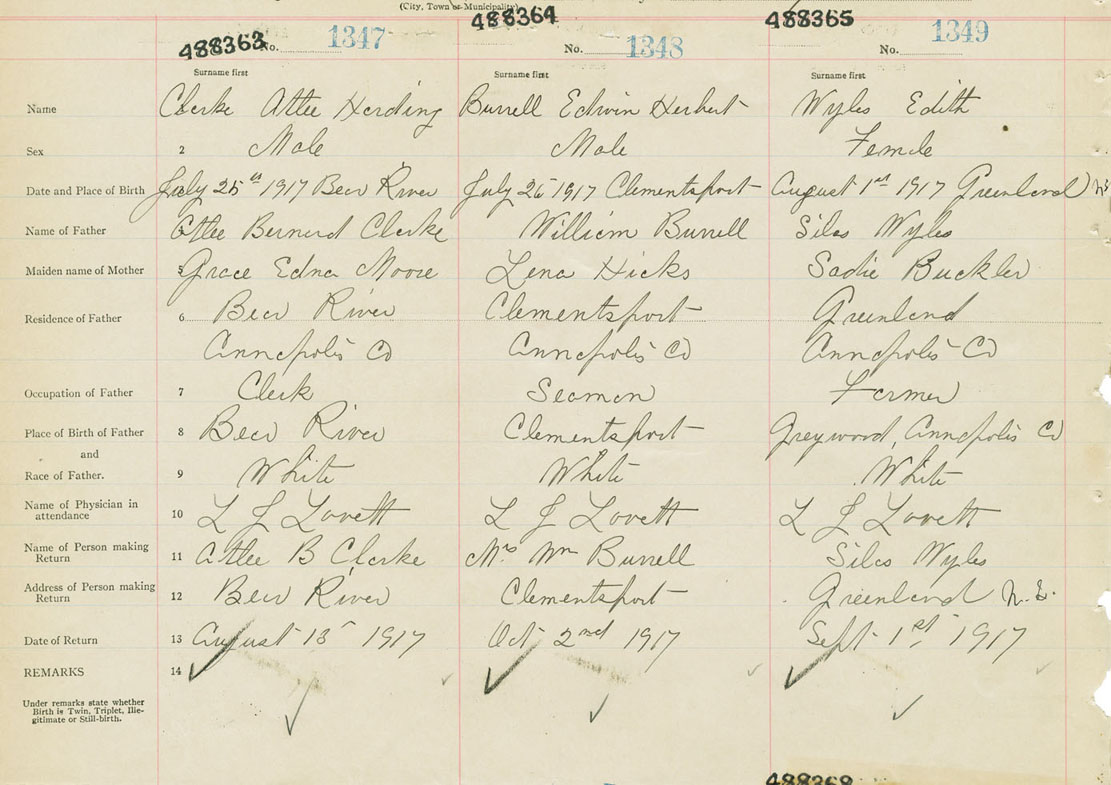 (City, Town or Municipality)
488363 No. 1347
488364 No. 1348
488365 No. 1349
Surname first Surname first Surname first
Name Clarke Atlee Harding Burrell Edwin Herbert Wyles Edith
Sex 2 Male Male Female
Date and Place of Birth July 25th 1917 Bear River July 26 1917 Clementsport August 1st 1917 Greenland NS
Name of Father Atlee Bernard Clarke William Burrell Silas Wyles
Maiden name of Mother 5 Grace Edna Moore Lena Hicks Sadie Buckler
Residence of Father 6 Bear River Clementsport Greenland
Annapolis Co Annapolis Co Annapolis Co
Occupation of Father 7 Clerk Seaman Farmer
Place of Birth of Father 8 Bear River Clementsport Greywood, Annapolis Co
and
Race of Father. 9 White White White
Name of Physician in attendance 10 L J Lovett L J Lovett L J Lovett
Name of Person making Return 11 Atlee B Clarke Mrs Wm Burrell Silas Wyles
Address of Person making Return 12 Bear River Clementsport Greenland N.S.
Date of Return 13 August 13 1917 Oct 2nd 1917 Sept 1st 1917
REMARKS 14
Under remarks state whether
Birth is Twin, Triplet, Ille-
gitimate or Still-birth.